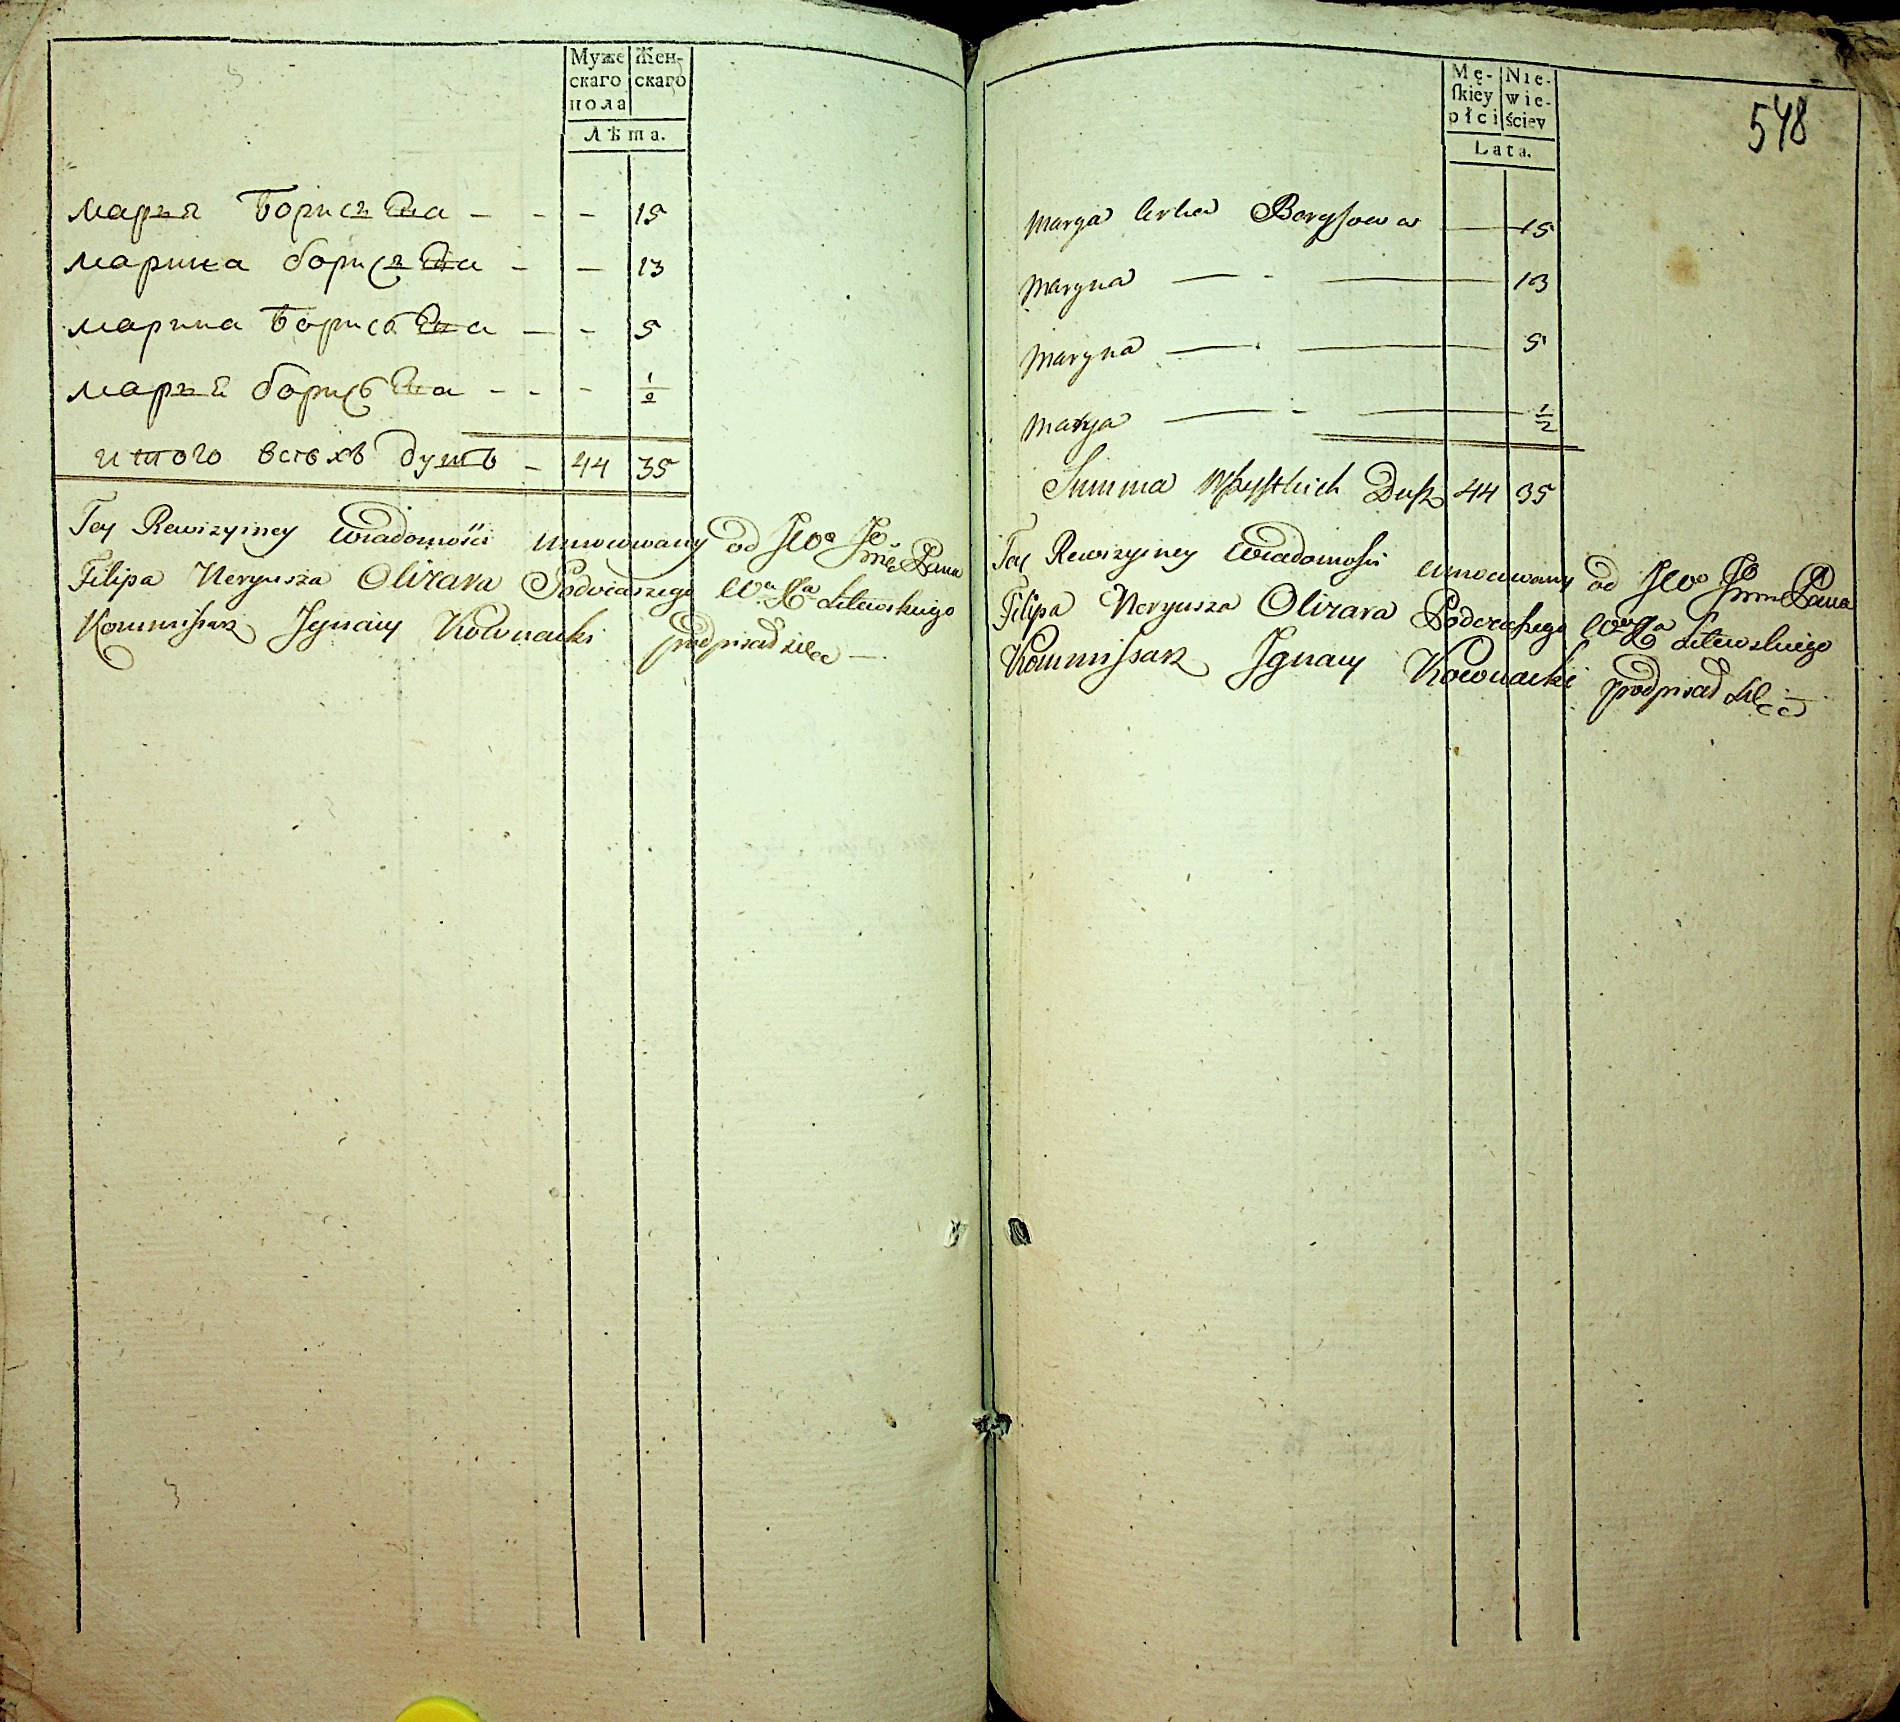 Муже Жен-
скаго скаго
пола
Лѣта.
марья Борисъ Дна - - - 15
марина борисъ Дна - - 13
марина Борисъ Дна - - 5
марья борисъ Дна - - - 1/2
итого всѣхъ душъ - 44 35
Tey Rewizyiney Wiadomości umocowany od JWo Jo Pana
Filipa Neryusza Olizara Podczaszego Wo Xa Litewskiego
Kommissarz Ignacy Kownacki podpisał się —
548
Mę- Nie-
ſkiey wie-
płci ściey
Lata.
Marya Borysowa — 15
Maryna — - — 13
Maryna — - — 5
Marya — - — 1/2
Summa Wszystkich Dusz 44 35
Tey Rewizyiney Wiadomości umocowany od JWo Jo Pana
Filipa Neryusza Olizara Podczaszego Wo Xa Litewskiego
Kommissarz Ignacy Kownacki podpisał się